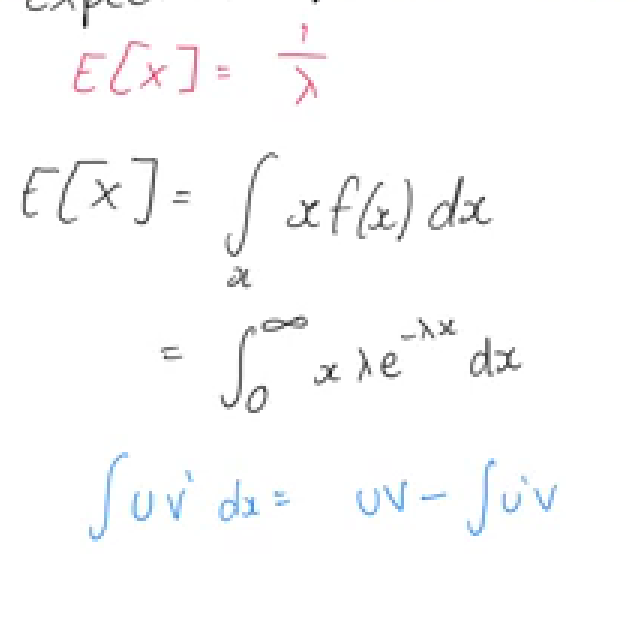 E[X] = 1/λ
E[X] = ∫ₓ x f(x) dx
= ∫₀^∞ x λe^(-λx) dx
∫ U V' dx = UV - ∫U'V